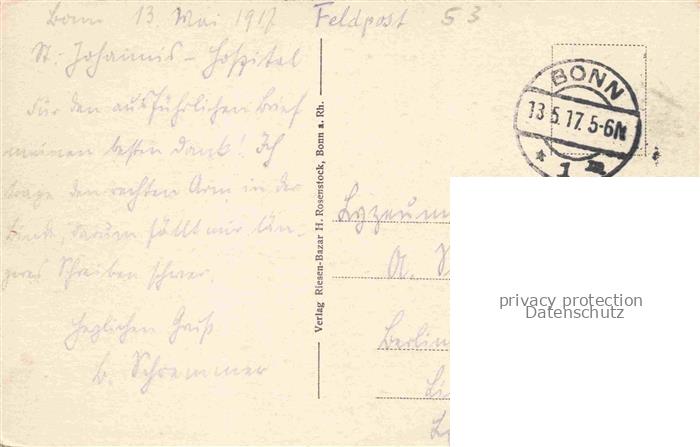 Bonn 13. Mai 1917
St. Johannis-Hospital
Für den ausführlichen Brief
meinen besten Dank! Ich
trage den rechten Arm in der
Binde, darum fällt mir län-
geres Schreiben schwer.
Herzlichen Gruß
Schremmer
Feldpost 53
BONN
13.5.17. 5-6N
* 1 m
Verlag Riesen-Bazar H. Rosenstock, Bonn a. Rh.
Lyzeum
A. S
Berlin
Li
privacy protection
Datenschutz